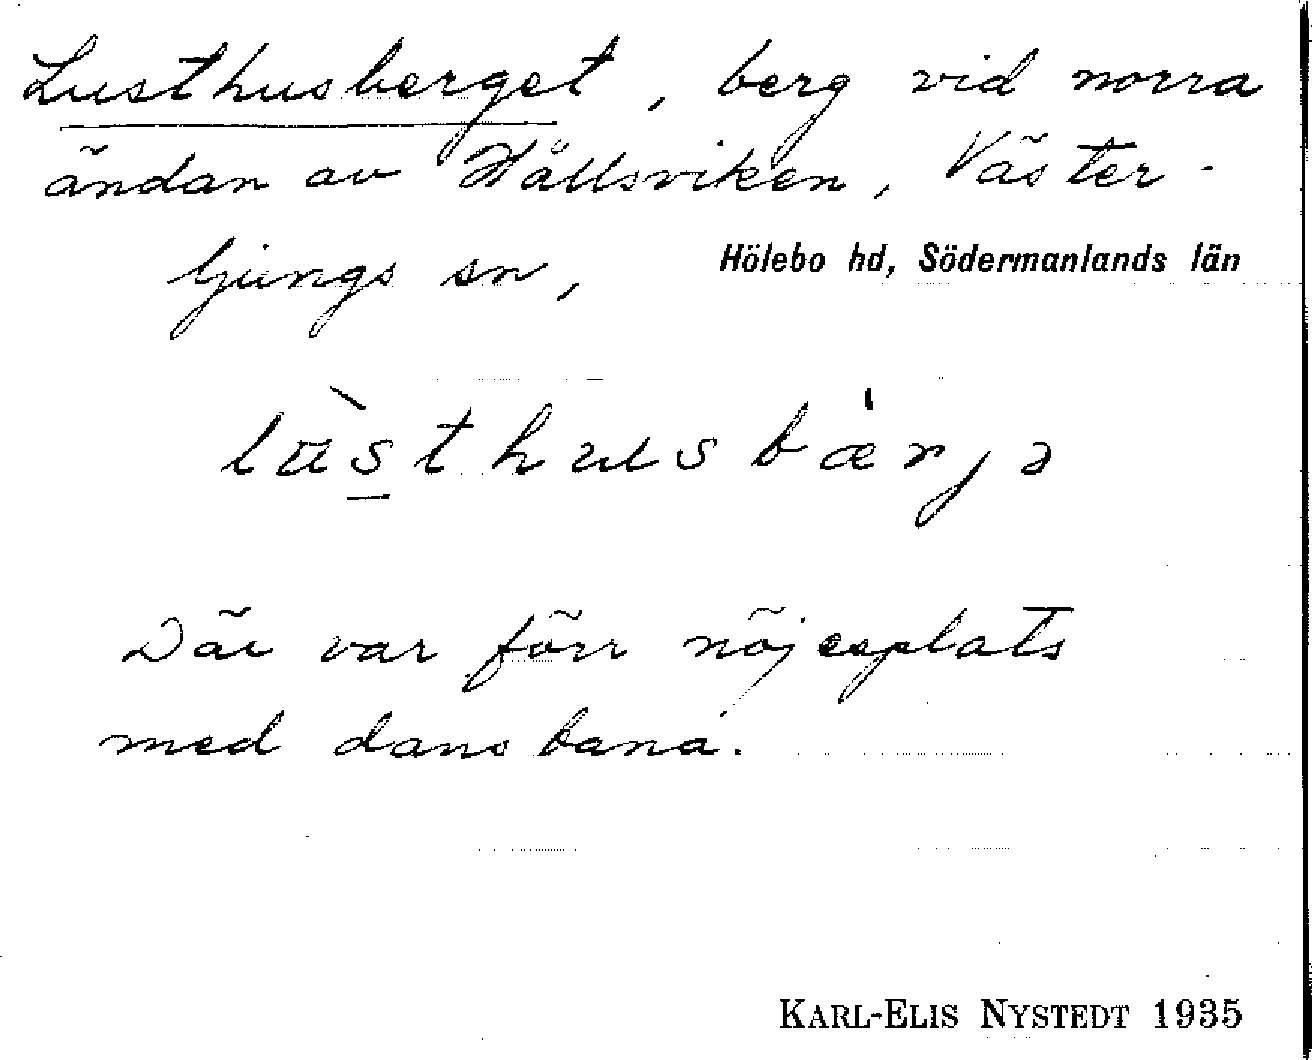 Lusthusberget, berg vid norra
ändan av Hållsviken, Väster-
ljungs sn, Hölebo hd, Södermanlands län
lùsthusbæ̀rjə
Där var förr nöjesplats
med dansbana.
KARL-ELIS NYSTEDT 1935